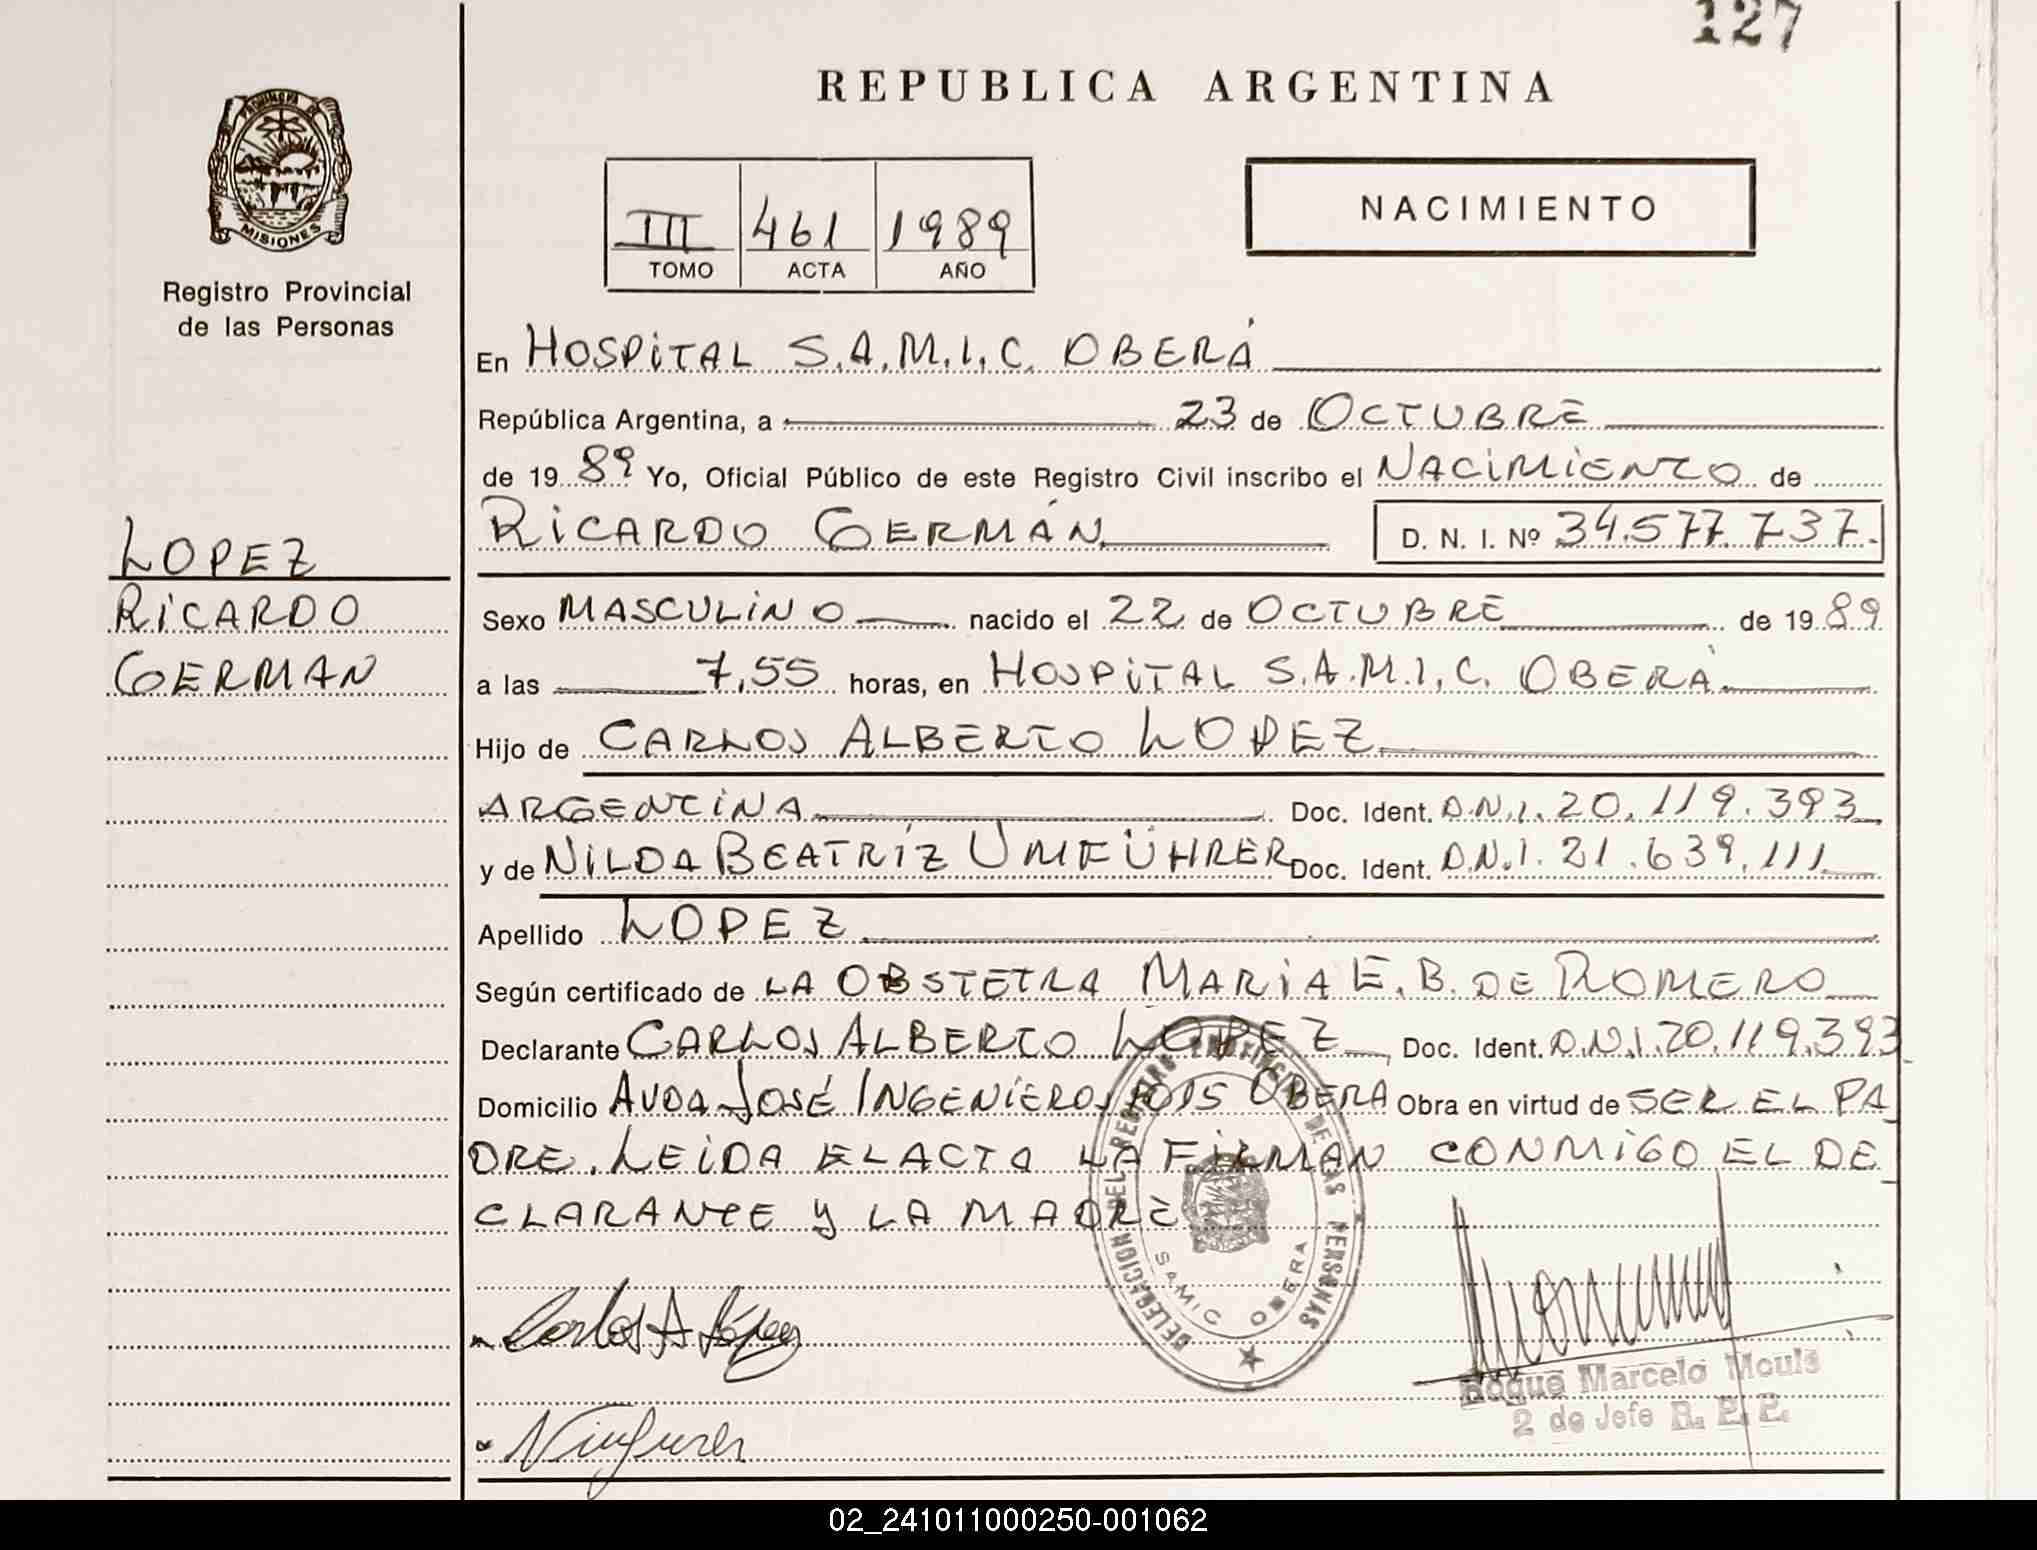 127
REPUBLICA ARGENTINA
PROVINCIA DE
MISIONES
Registro Provincial
de las Personas
III 461 1989
TOMO ACTA AÑO
NACIMIENTO
En HOSPITAL S.A.M.I.C. OBERÁ
República Argentina, a 23 de OCTUBRE
de 19 89 Yo, Oficial Público de este Registro Civil inscribo el NACIMIENTO de
RICARDO GERMÁN D. N. I. Nº 34.577.737.
LOPEZ
RICARDO
GERMAN
Sexo MASCULINO nacido el 22 de OCTUBRE de 19 89
a las 7,55 horas, en HOSPITAL S.A.M.I.C. OBERÁ
Hijo de CARLOS ALBERTO LOPEZ
ARGENTINA Doc. Ident. D.N.I. 20.119.393
y de NILDA BEATRÍZ UMFÜHRER Doc. Ident. D.N.I. 21.639.111
Apellido LOPEZ
Según certificado de LA OBSTETRA MARIA E. B. DE ROMERO
Declarante CARLOS ALBERTO LOPEZ Doc. Ident. D.N.I. 20.119.393
Domicilio AVDA JOSÉ INGENIEROS OBERA Obra en virtud de SER EL PA
DRE. LEIDA EL ACTA LA FIRMAN CONMIGO EL DE
CLARANTE Y LA MADRE
DELEGACION DEL REGISTRO PROVINCIAL DE LAS PERSONAS
SAMIC OBERA
Carlos A López
Roque Marcelo
2 do Jefe R. P. P.
02_241011000250-001062